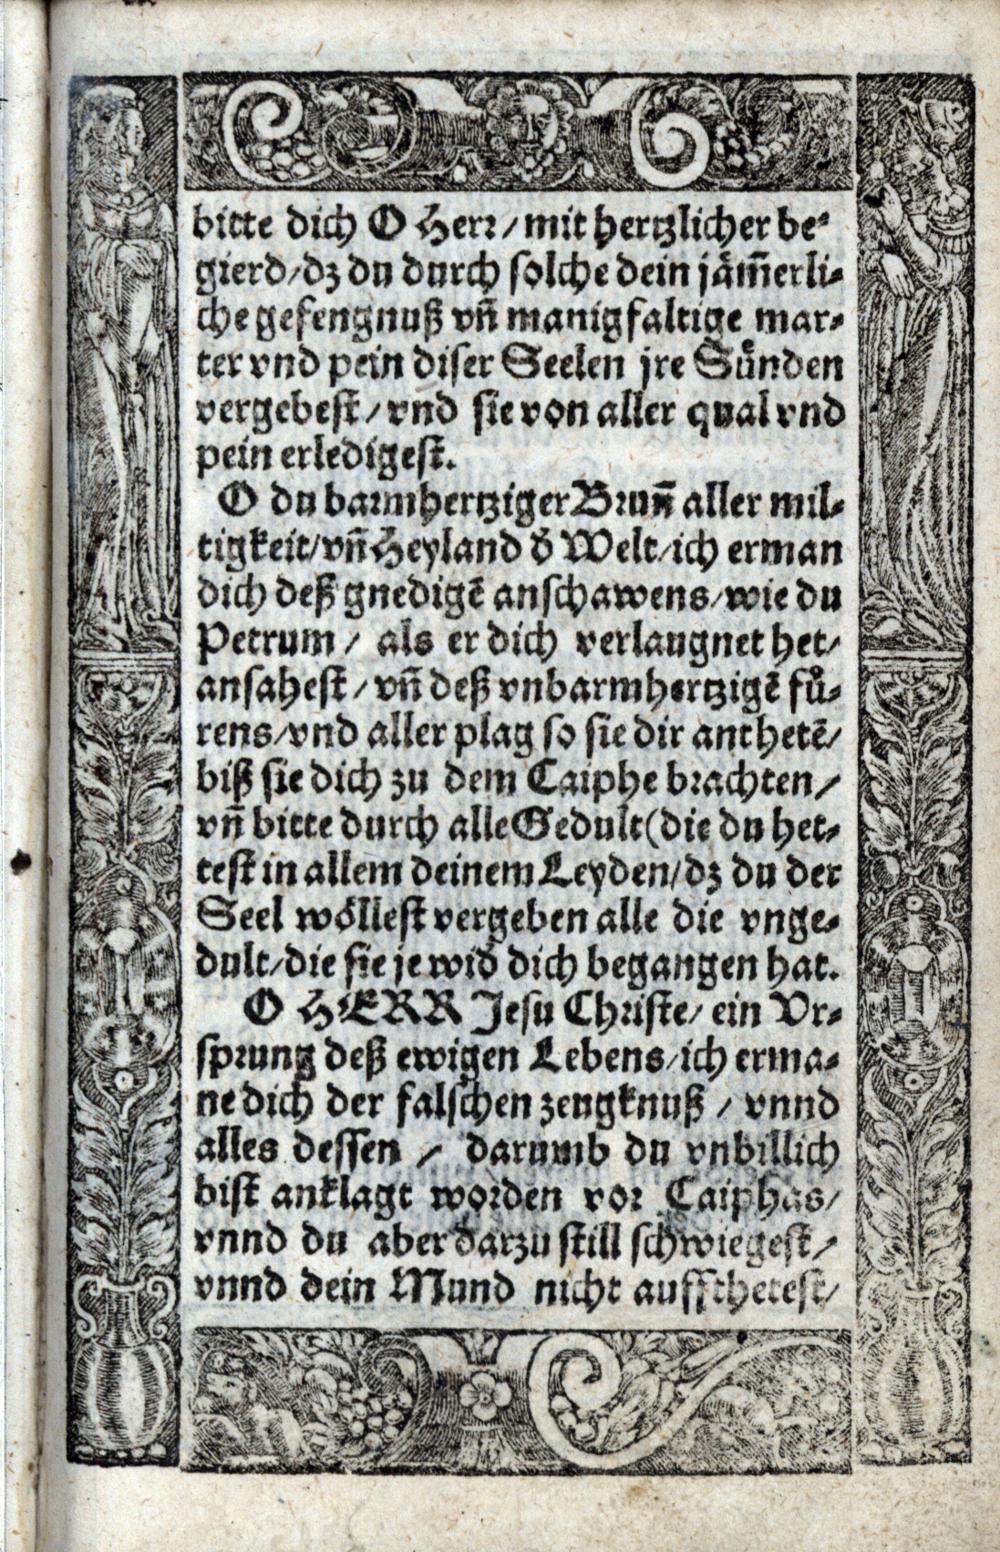 bitte dich O Herr / mit hertzlicher be⸗
gierd / dz du durch solche dein jåm̃erli⸗
che gefengnuß vñ manigfaltige mar⸗
ter vnd pein diser Seelen jre Sünden
vergebest / vnd sie von aller qual vnd
pein erledigest.
O du barmhertziger Brun̄ aller mil⸗
tigkeit / vñ Heyland ð Welt / ich erman
dich deß gnedigẽ anschawens / wie du
Petrum / als er dich verlaugnet het /
ansahest / vñ deß vnbarmhertzigẽ fů⸗
rens / vnd aller plag so sie dir anthetẽ /
biß sie dich zu dem Caiphe brachten /
vñ bitte durch alle Gedult (die du het⸗
test in allem deinem Leyden / dz du der
Seel wöllest vergeben alle die vnge⸗
dult / die sie je wið dich begangen hat.
O HERR Jesu Christe / ein Vr⸗
sprung deß ewigen Lebens / ich erma⸗
ne dich der falschen zeugknuß / vnnd
alles dessen / darumb du vnbillich
bist anklagt worden vor Caiphas /
vnnd du aber darzu still schwiegest /
vnnd dein Mund nicht auffthetest /